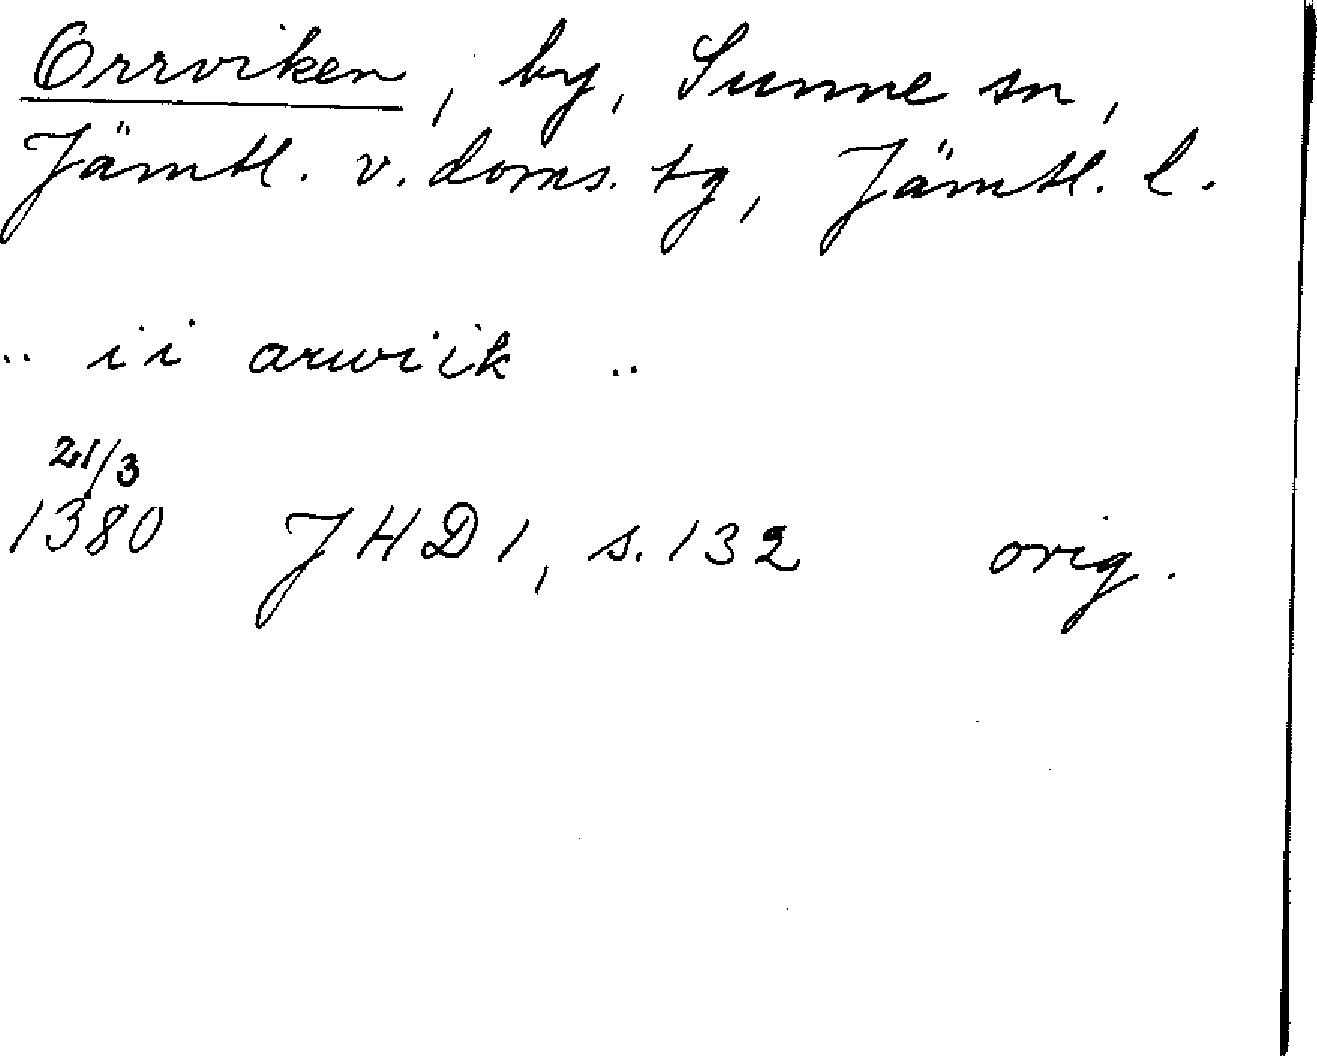 Orrviken, by, Sunne sn,
Jämtl. v. doms. tg, Jämtl. l.
.. i i arwiik ..
21/3
1380 JHD 1, s. 132 orig.